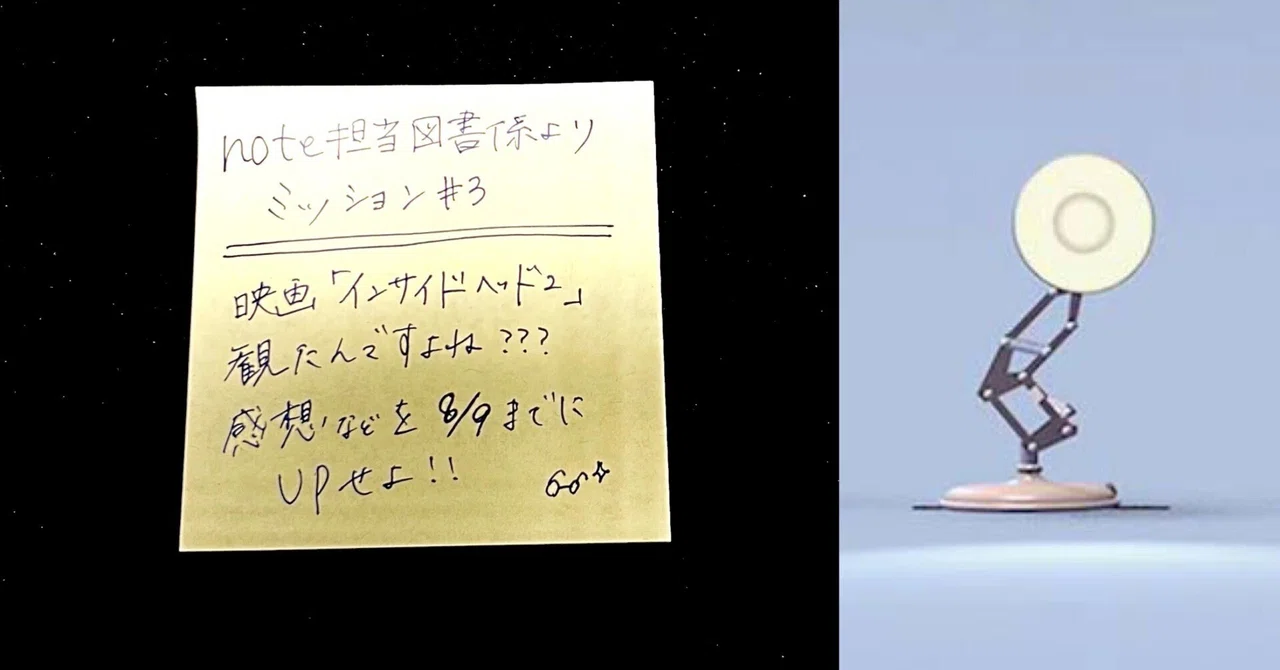 note担当図書係より
ミッション#3
映画「インサイドヘッド2」
観たんですよね???
感想などを8/9までに
UPせよ!!